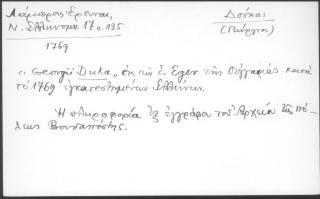 Λάμπρος: Έρευναι,
Ν. Ελλήνομν. 17 σ. 135
1769
Δούκας
(Γεώργιος)
"Georgii Duka" ἐκ τῶν ἐν Eger τῆς Οὑγγαρίας κατὰ
τὸ 1769 ἐγκατεστημένων Ἑλλήνων.
Ἡ πληροφορία ἐξ ἐγγράφου τοῦ Ἀρχείου τῆς πό-
λεως Βουδαπέστης.